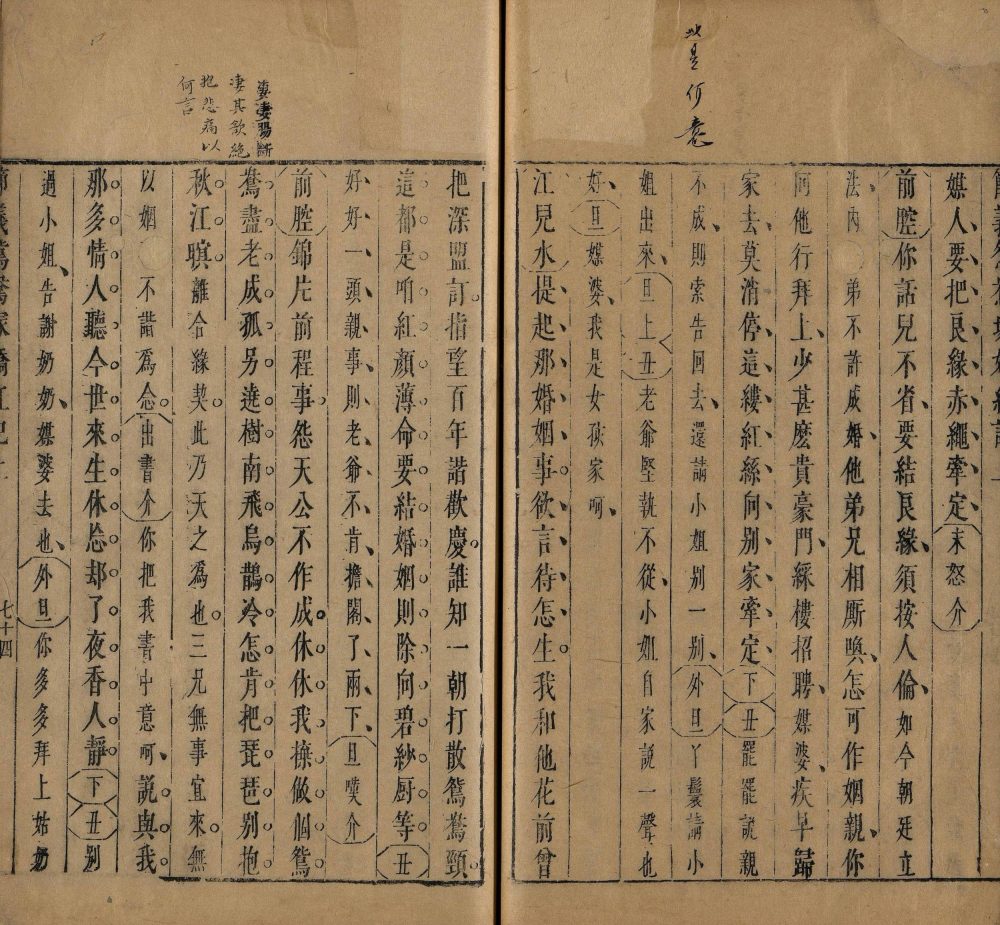 此是何意
媒人要把良緣赤繩牽定末怒介
前腔你話兒不省要結良緣須按人倫如今朝廷立
法內弟不許成婚他弟兄相厮喚怎可作姻親你
他行拜上少甚麽貴豪門綵樓招聘媒婆疾早歸
家去莫消停這縷紅絲向別家牽定下丑罷罷說親
不成則索告回去還請小姐別一別外旦丫鬟請小
姐出來旦上丑老爺堅執不從小姐自家說一聲也
好旦媒婆我是女孩家呵
江兒水提起那婚姻事欲言待怎生我和他花前曾
腸斷
淒其欲絕
抱悲痛以
何言
把深盟訂指望百年諧歡慶誰知一朝打散鴛鴦頸
這都是咱紅顏薄命要結婚姻則除向碧紗厨等丑
好好一頭親事則老爺不肯擔閣了兩下旦嘆介
前腔錦片前程事怨天公不作成休休我揍做個鴛
鴦盡老成孤另遶樹南飛烏鵲冷怎肯把琵琶別抱
秋江暝離合緣契此乃天之爲也三兄無事宜來無
以姻不諧爲念出書介你把我書中意呵說與我
那多情人聽今世來生休忘却了夜香人靜下丑別
過小姐告謝奶奶媒婆去也外旦你多多拜上姑奶
七十四